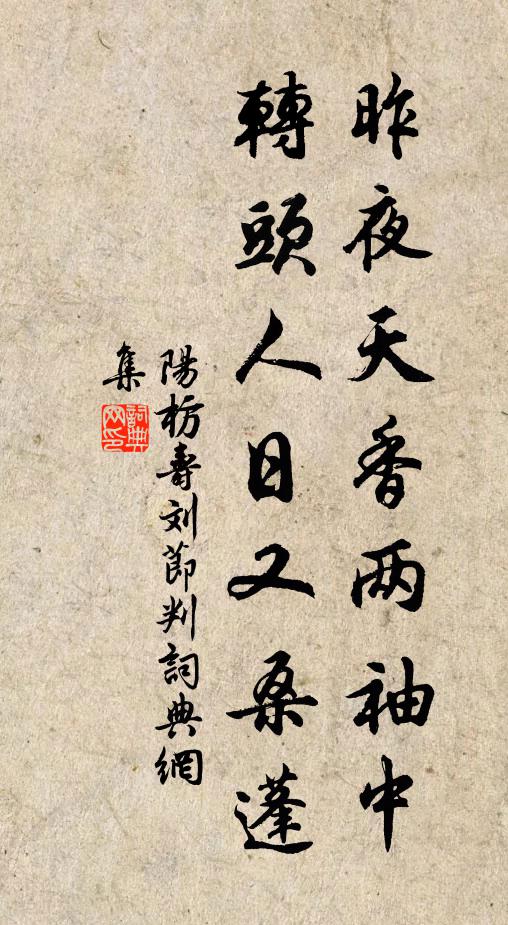 昨夜天香两袖中
轉頭人日又桑蓬
陽枋壽刘節判詞典網
集
詞典
网印